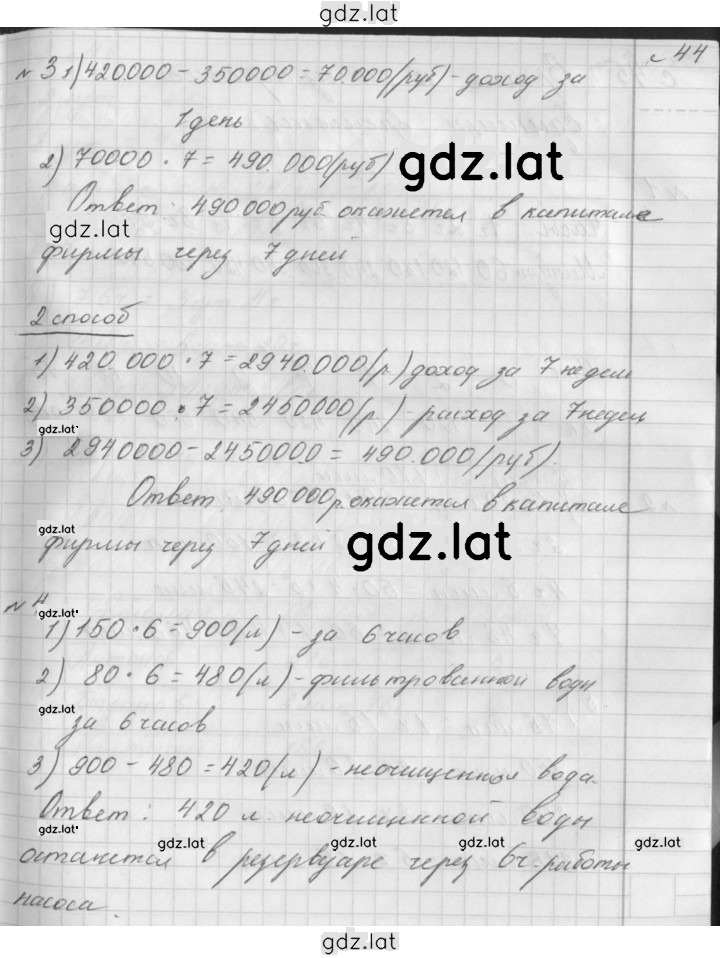 gdz.lat
с 44
№ 3 1) 420000 - 350000 = 70.000 (руб) - доход за
1 день
2) 70000 · 7 = 490.000 (руб)
gdz.lat
Ответ: 490000 руб. окажется в капитале
gdz.lat
фирмы через 7 дней
2 способ
1) 420.000 · 7 = 2940.000 (р) доход за 7 недел
2) 350000 · 7 = 2450000 (р) - расход за 7 недел
gdz.lat
3) 2940000 - 2450000 = 490.000 (руб).
Ответ. 490000 р. окажется в капитале
gdz.lat
фирмы через 7 дней
gdz.lat
№ 4
gdz.lat
1) 150 · 6 = 900 (л) - за 6 часов
2) 80 · 6 = 480 (л) - фильтрованной воды
gdz.lat
за 6 часов
3) 900 - 480 = 420 (л) - неочищенная вода.
Ответ: 420 л. неочищнной воды
gdz.lat
gdz.lat gdz.lat gdz.lat
останется в резервуаре через 6ч. работы
насоса.
gdz.lat